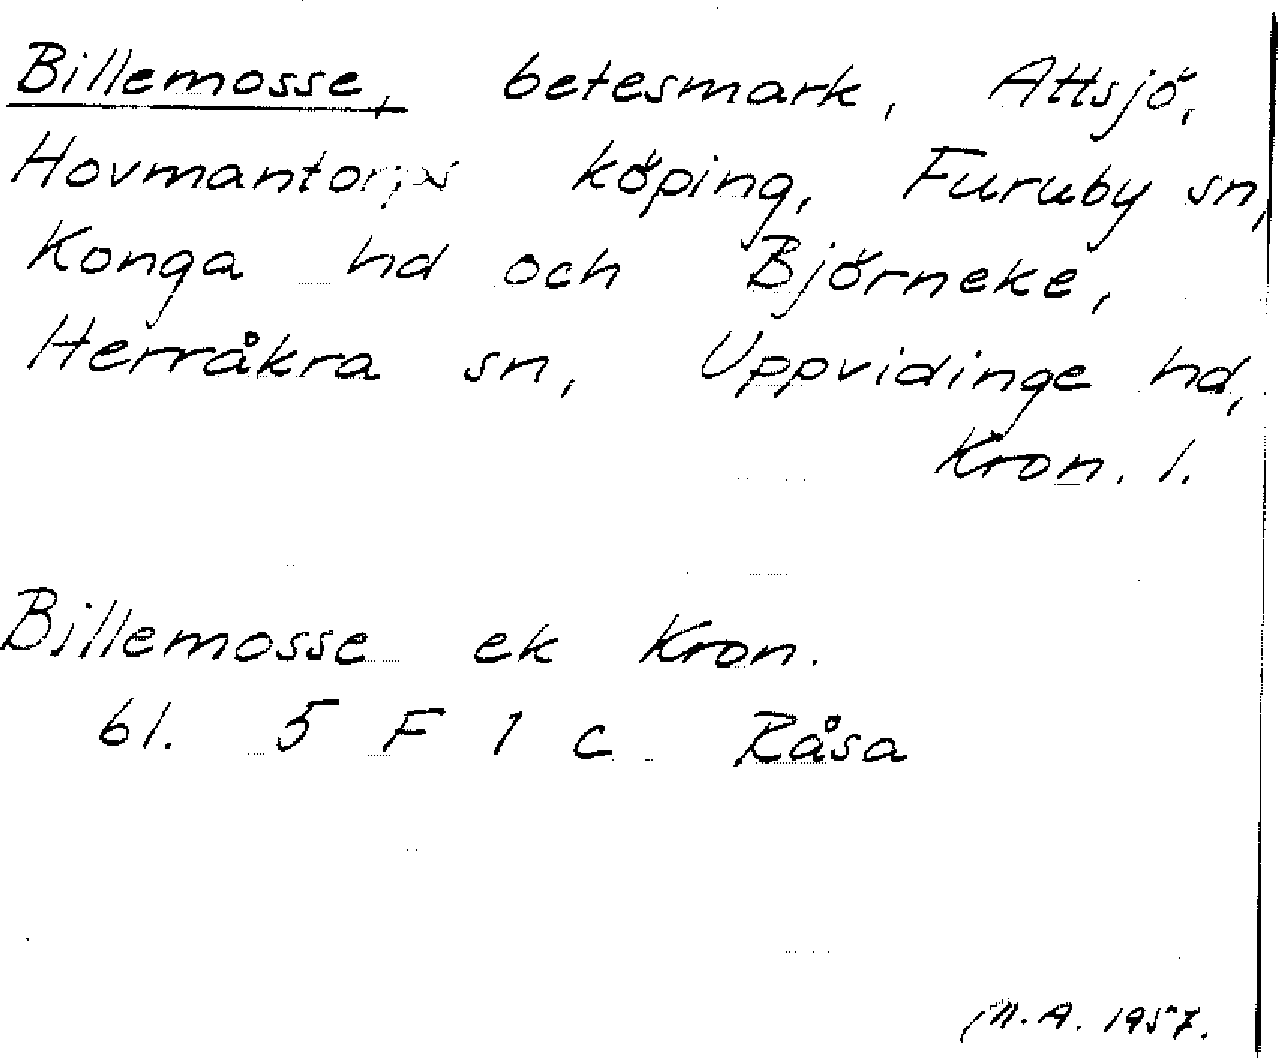 Billemosse, betesmark, Attsjö,
Hovmantorps köping, Furuby sn,
Konga hd och Björneke,
Herråkra sn, Uppvidinge hd,
Kron. l.
Billemosse ek Kron.
bl. 5 F 1 c Råsa
M.A. 1957.